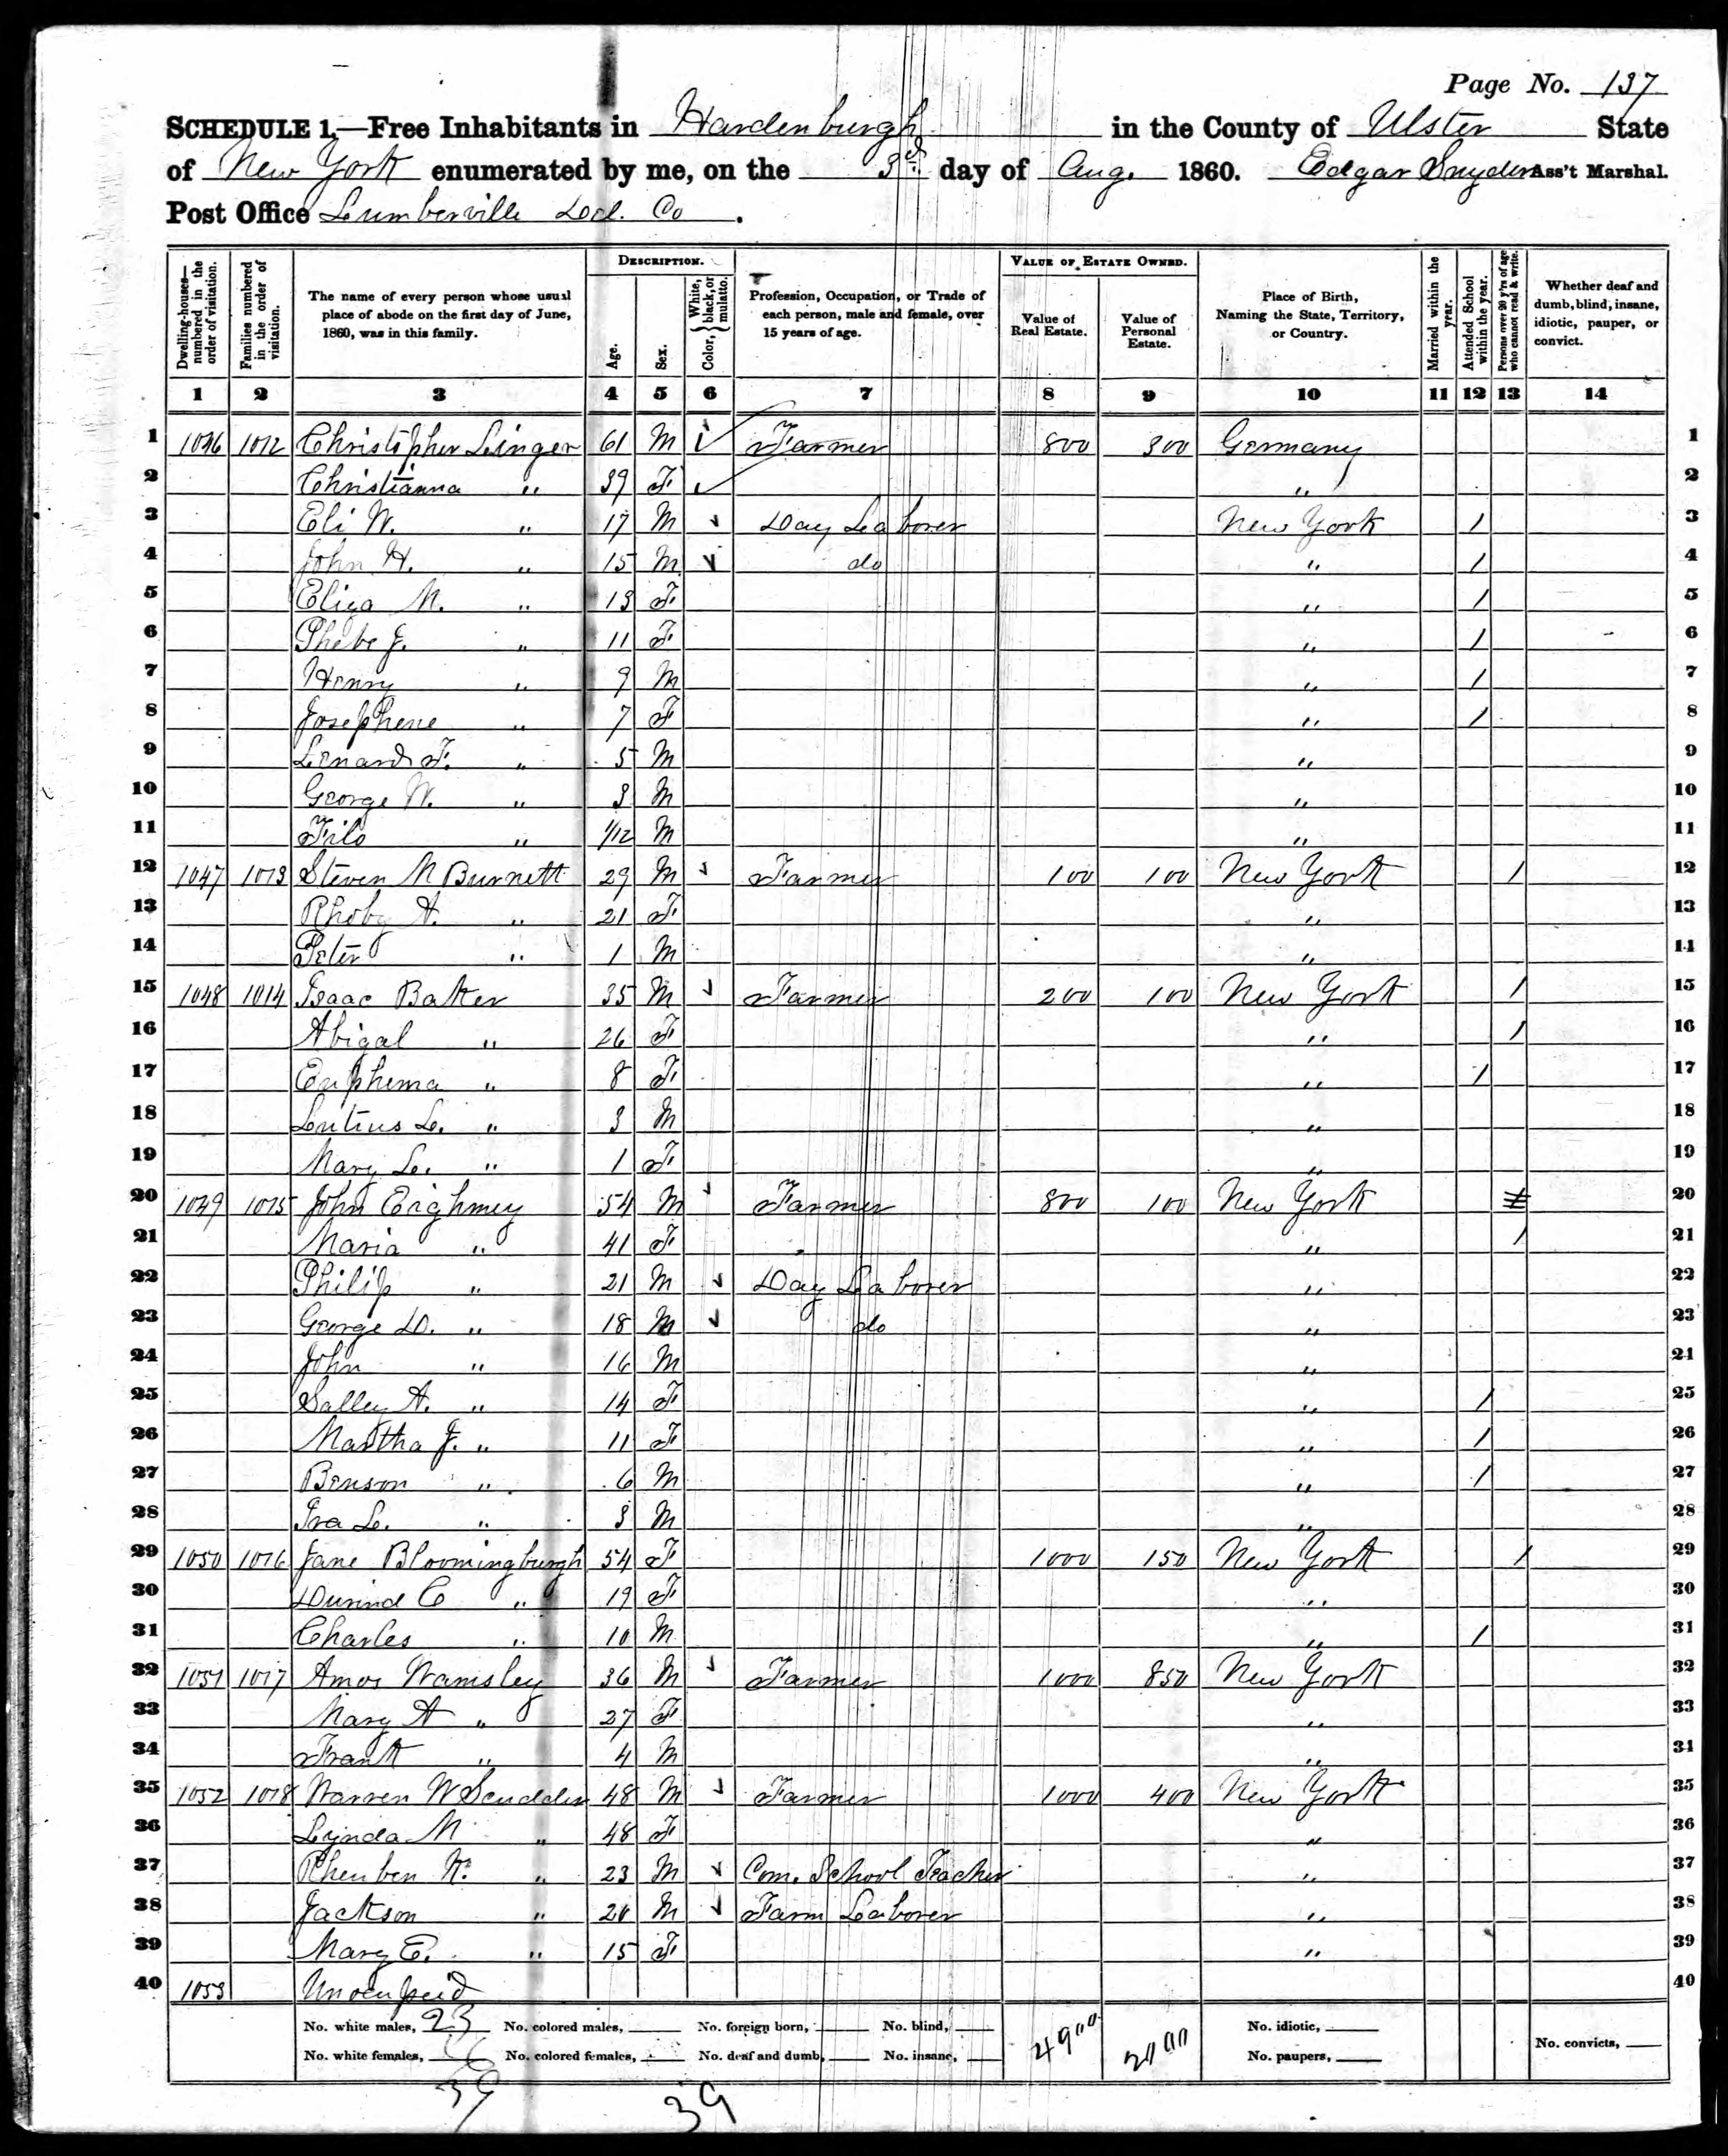 Page No. 137
SCHEDULE 1,—Free Inhabitants in Hardenburgh in the County of Ulster State
of New York enumerated by me, on the 3d day of Aug. 1860. Edgar Snyder Ass't Marshal.
Post Office Lumberville Del. Co.
Dwelling-houses—numbered in the order of visitation. Families numbered in the order of visitation. The name of every person whose usual place of abode on the first day of June, 1860, was in this family. DESCRIPTION. Age. Sex. Color, { White, black, or mulatto. Profession, Occupation, or Trade of each person, male and female, over 15 years of age. VALUE OF ESTATE OWNED. Value of Real Estate. Value of Personal Estate. Place of Birth, Naming the State, Territory, or Country. Married within the year. Attended School within the year. Persons over 20 y'rs of age who cannot read & write. Whether deaf and dumb, blind, insane, idiotic, pauper, or convict.
1 2 3 4 5 6 7 8 9 10 11 12 13 14
1 1046 1012 Christopher Singer 61 M Farmer 800 300 Germany 1
2 Christianna " 39 F " 2
3 Eli W. " 17 M Day Laborer New York / 3
4 John H. " 15 M do " / 4
5 Eliza M. " 13 F " / 5
6 Phebe J. " 11 F " / 6
7 Henry " 9 M " / 7
8 Josephene " 7 F " / 8
9 Lenard F. " 5 M " 9
10 George W. " 3 M " 10
11 Filo " 1/12 M " 11
12 1047 1013 Steven M Burnett 29 M Farmer 100 100 New York / 12
13 Rhoby A. " 21 F " 13
14 Peter " 1 M " 14
15 1048 1014 Isaac Baker 35 M Farmer 200 100 New York / 15
16 Abigal " 26 F " / 16
17 Euphema " 8 F " / 17
18 " 3 M " 18
19 Mary L. " 1 F " 19
20 1049 1015 John Eighmey 54 M Farmer 800 100 New York 20
21 Maria " 41 F " / 21
22 Philip " 21 M Day Laborer " 22
23 George D. " 18 M do " 23
24 John " 16 M " 24
25 Salley A. " 14 F " / 25
26 Martha J. " 11 F " / 26
27 Benson " 6 M " / 27
28 Ira L. " 3 M " 28
29 1050 1016 Jane Bloomingburgh 54 F 1000 150 New York / 29
30 " 19 F " 30
31 Charles " 10 M " / 31
32 1051 1017 Amos Wamsley 36 M Farmer 1000 850 New York 32
33 Mary A " 27 F " 33
34 Frank " 4 M " 34
35 1052 1018 Warren W Scudder 48 M Farmer 1000 400 New York 35
36 Lynda M " 48 F " 36
37 Rheuben " 23 M Com. School Teacher " 37
38 Jackson " 20 M Farm Laborer " 38
39 Mary E. " 15 F " 39
40 1053 Unoccupied 40
No. white males, 23 No. colored males, No. foreign born, No. blind, 4900 No. idiotic,
No. white females, No. colored females, No. deaf and dumb, No. insane, No. paupers, No. convicts,
39 39